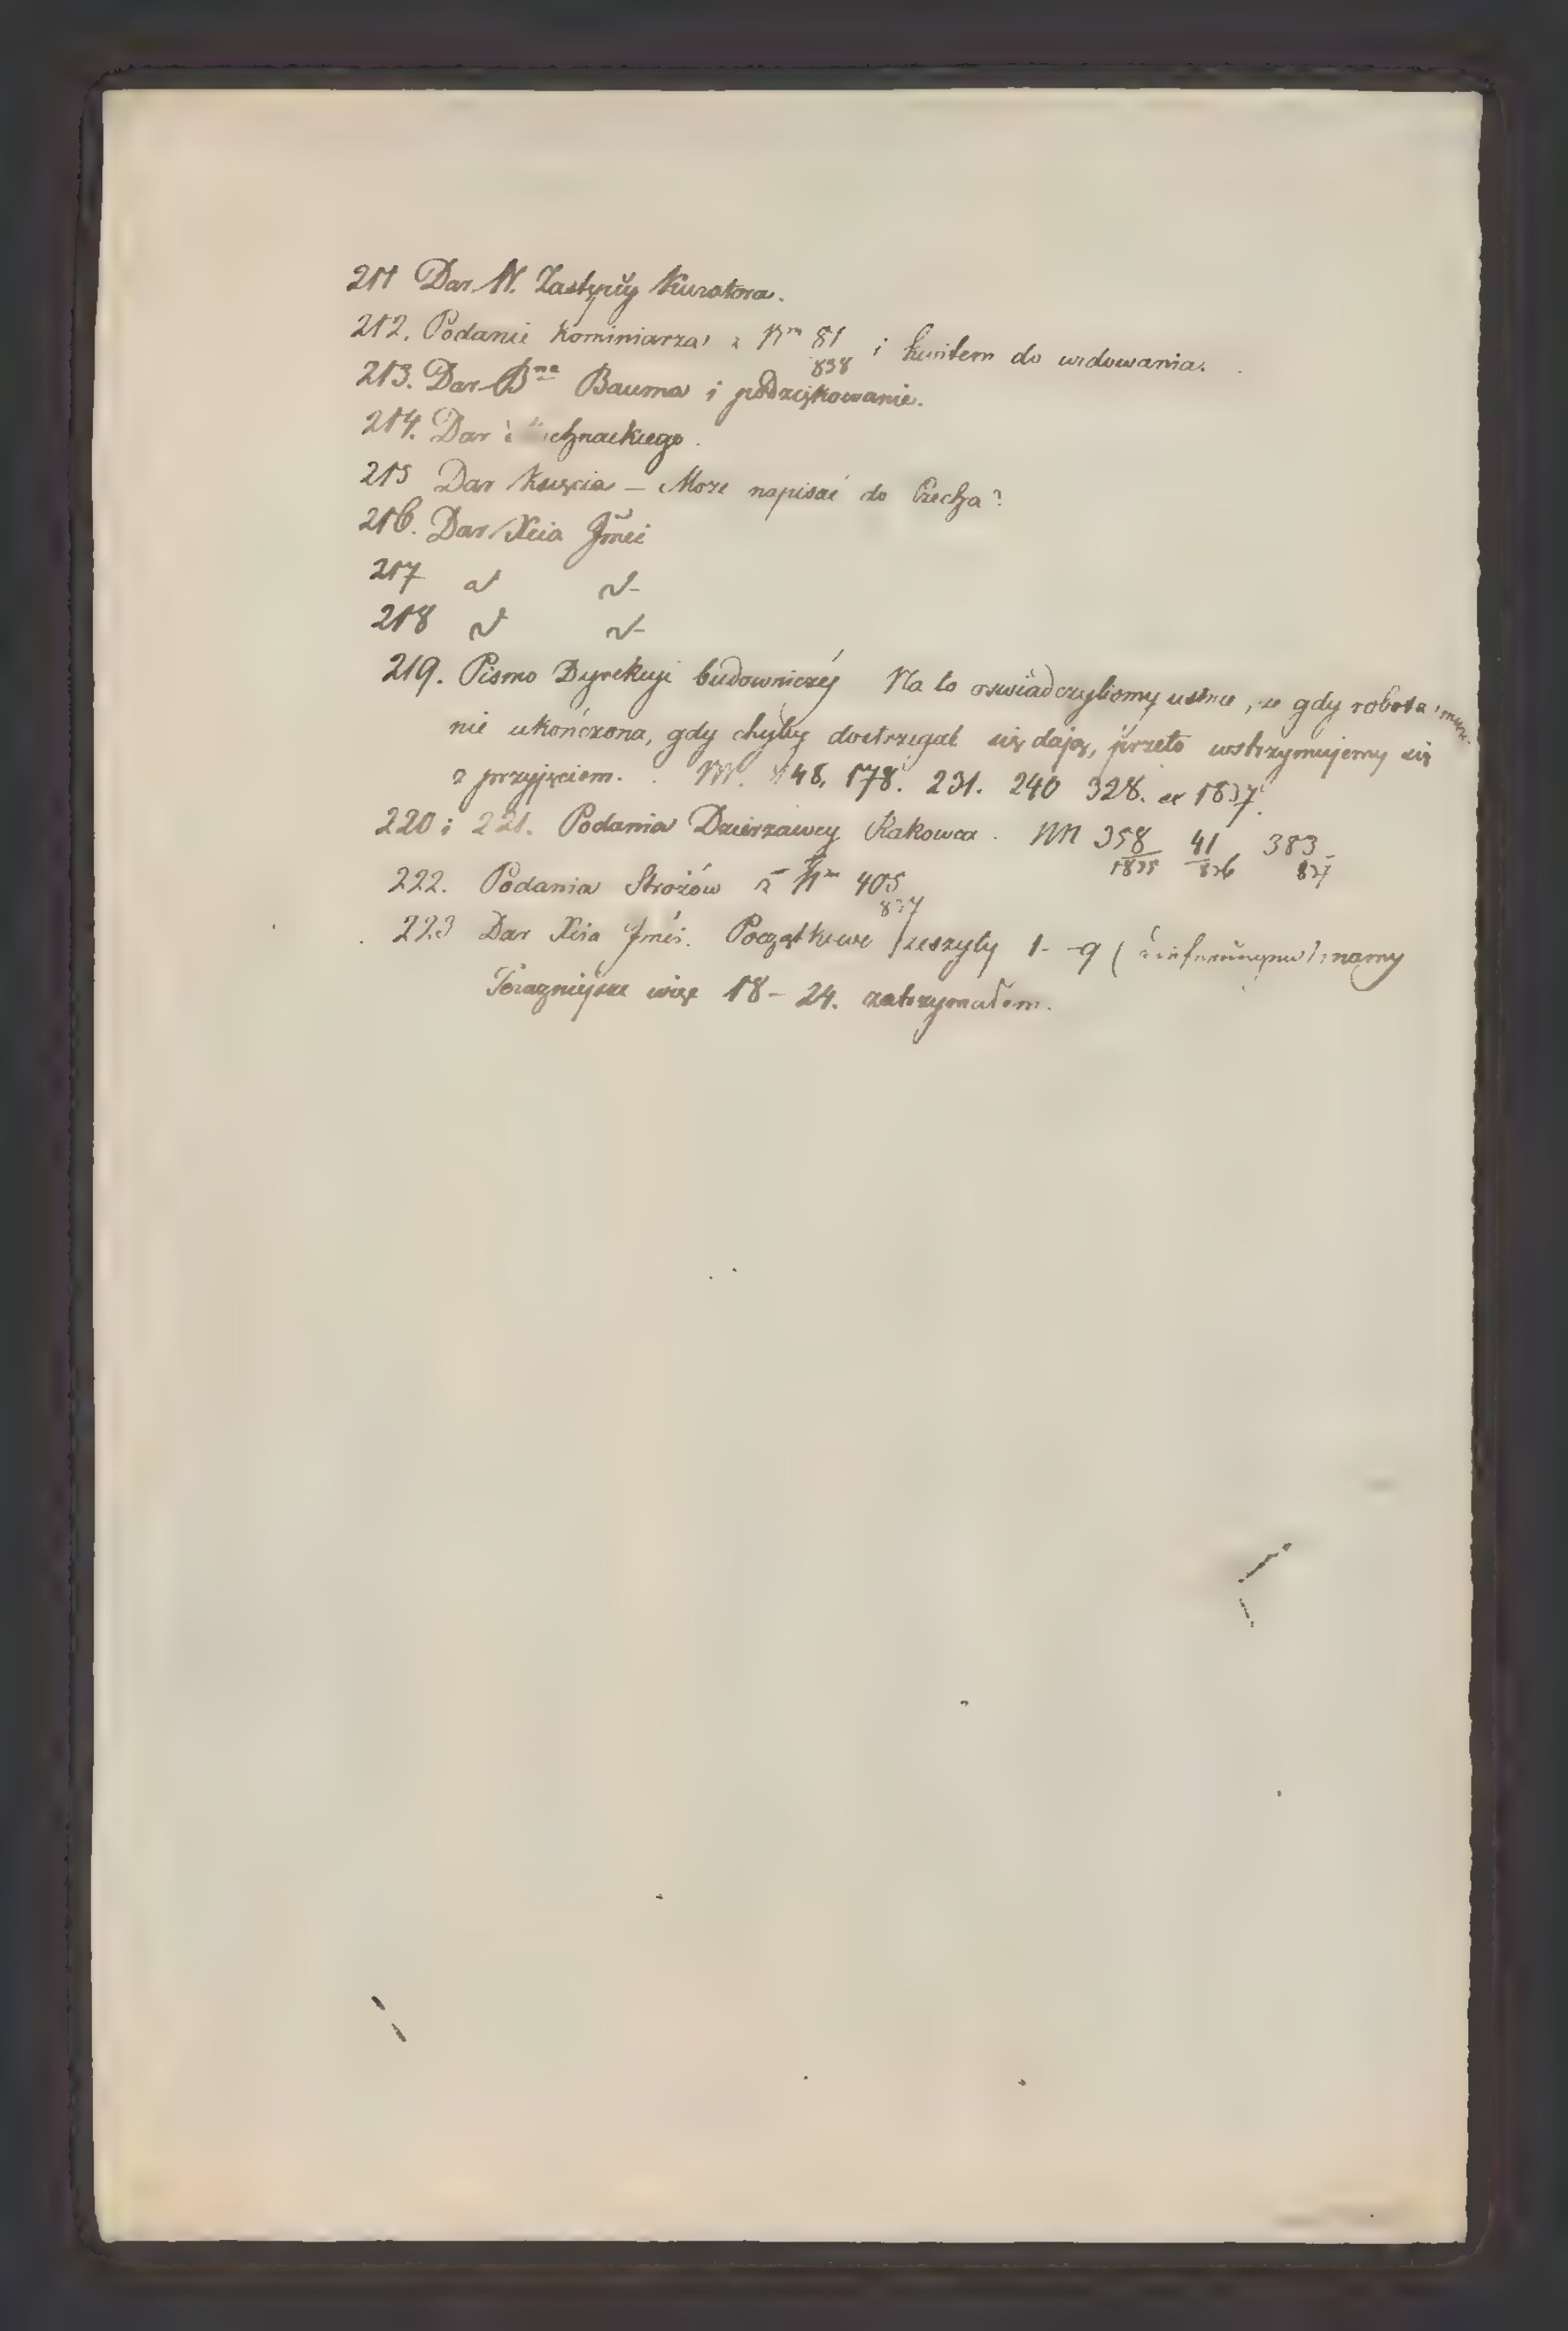 211 Dar N. Zastępcy Kuratora.
212. Podanie Kominiarza z Nrm 81/838 i kwitem do widowania.
213. Dar Bna Bauma i podziękowanie.
214. Dar
215 Dar Księcia – Może napisać do Czecha?
216. Dar Xcia Jmci
217
218
219. Pismo Dyrekcyi budowniczéj Na to oswiadczylismy ustnie, że gdy robota
nie ukończona, gdy chyby dostrzegać się dają, przeto wstrzymujemy się
z przyjęciem. NN. 148, 178. 231. 240 328. ex 1837.
220 i 221. Podania Dzierzawcy Rakowca. NN 358/1835 41/836 383/837
222. Podania Strożów z Nrm 405/837
223 Dar Xcia Jmci. Początkowe zeszyty 1 - 9 ( mamy
Terazniejsze więc 18 - 24. zatrzymałem.